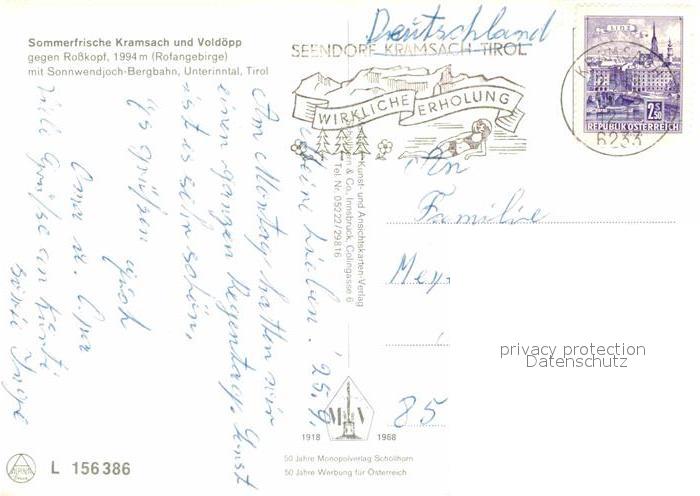 Sommerfrische Kramsach und Voldöpp
gegen Roßkopf, 1994 m (Rofangebirge)
mit Sonnwendjoch-Bergbahn, Unterinntal, Tirol
Deutschland
SEENDORF KRAMSACH TIROL
WIRKLICHE ERHOLUNG
LINZ
2.50
REPUBLIK ÖSTERREICH
6233
Meine Lieben. 25.9.
Am Montag hatten wir
einen ganzen Regentag. Sonst
ist es sehr schön.
Es grüßen Euch
Oma u. Opa
Viele Grüße an
Kunst- und Ansichtskarten-Verlag
& Co, Innsbruck, Colingasse 6
Tel. Nr. 05222/29816
An
Familie
Mey.
85
privacy protection
Datenschutz
M V
1918 1968
50 Jahre Monopolverlag Schöllhorn
50 Jahre Werbung für Österreich
ALPINA
L 156386